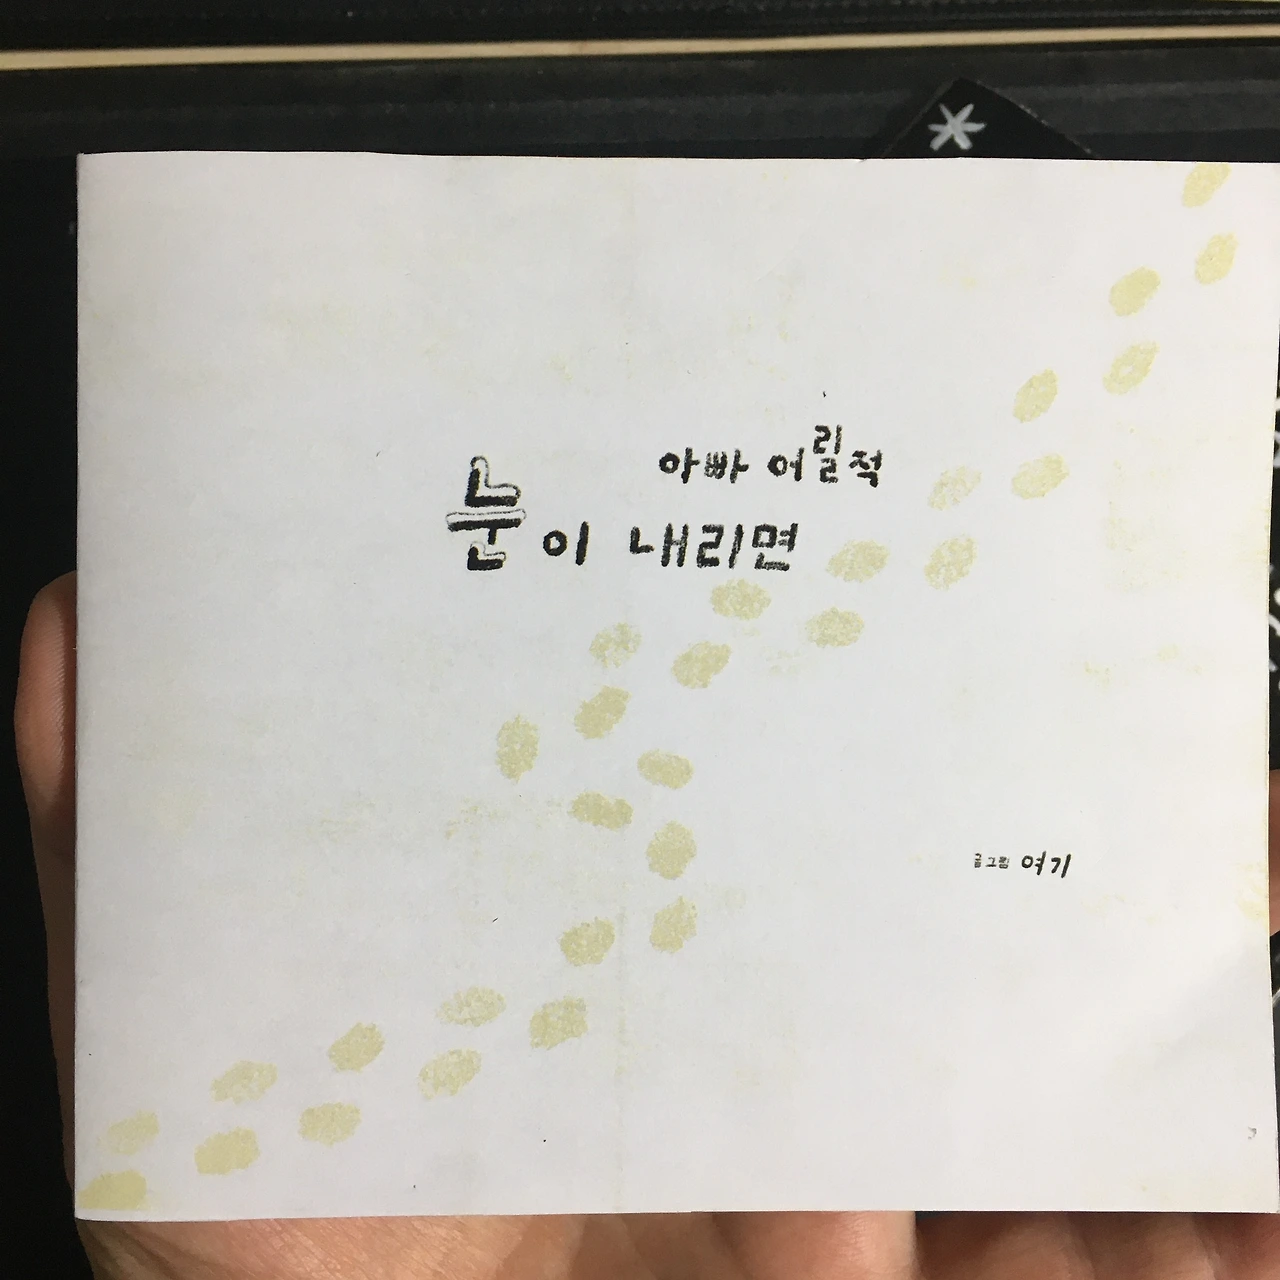 아빠 어릴적
눈이 내리면
글그림 여기